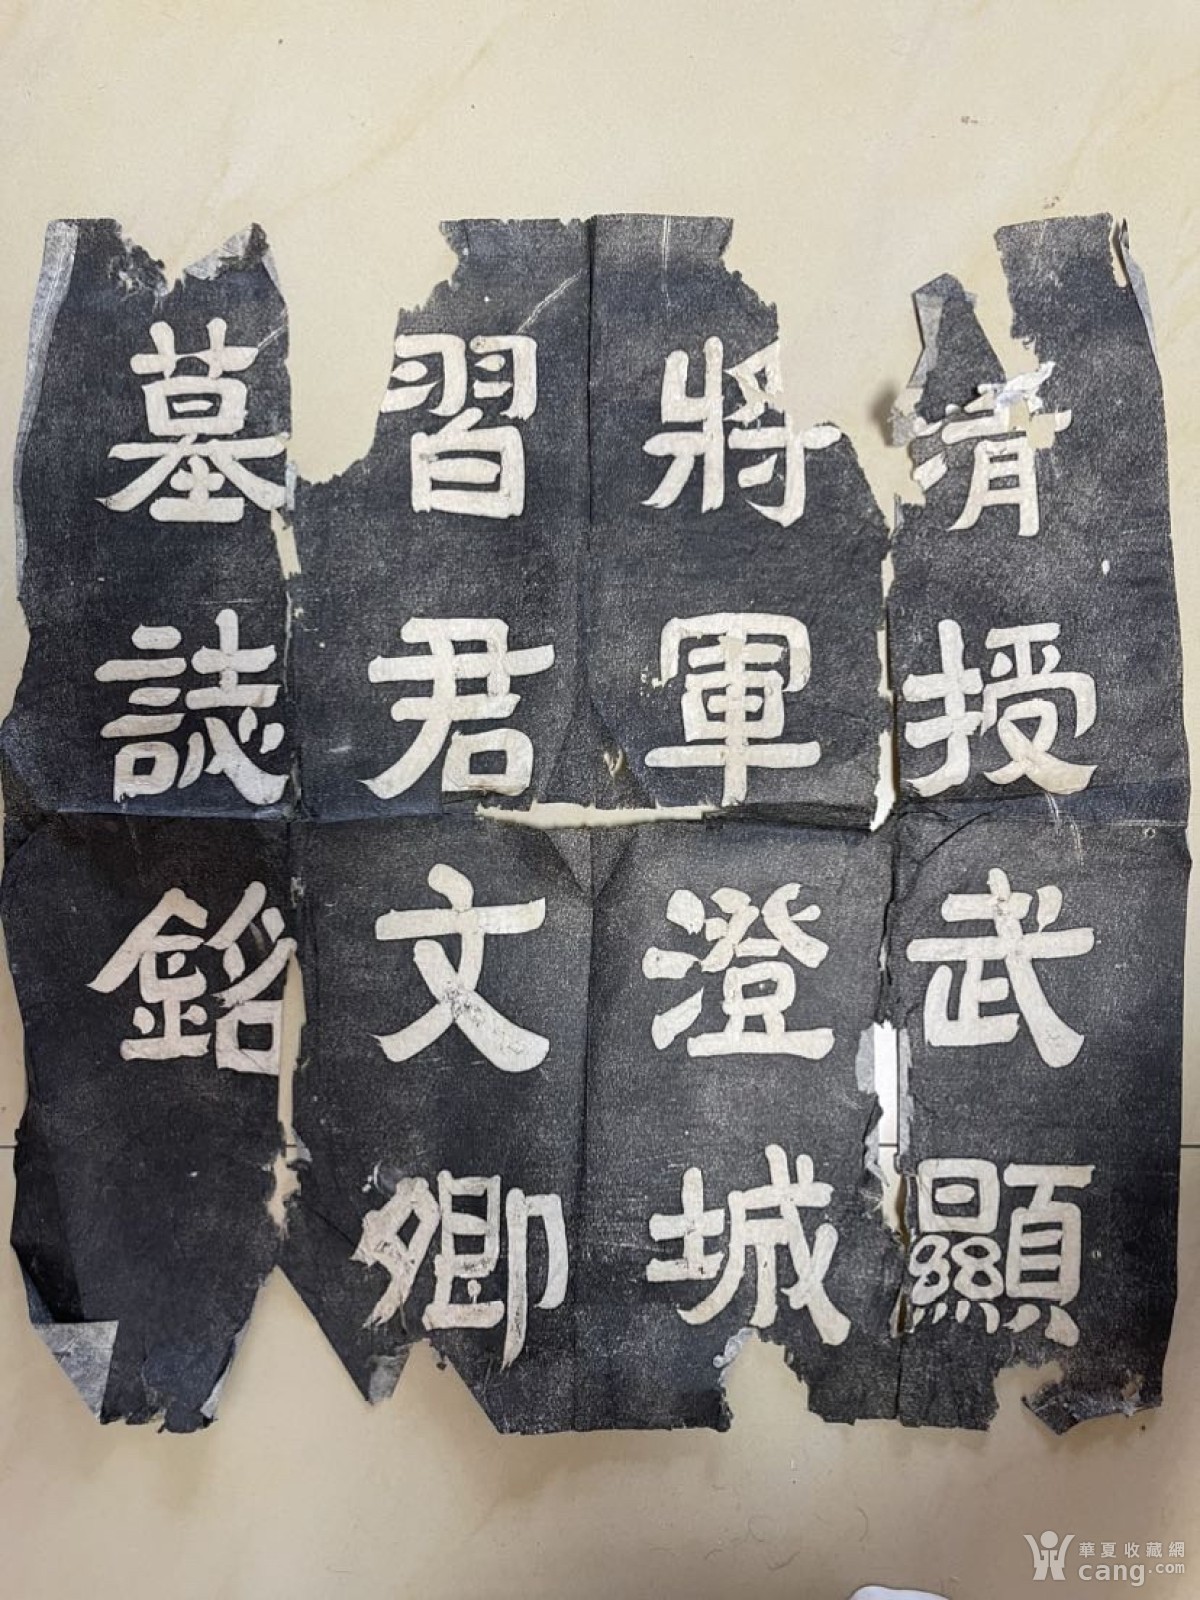 清授武顯
將軍澄城
習君文卿
墓誌銘
華夏收藏網
cang.com